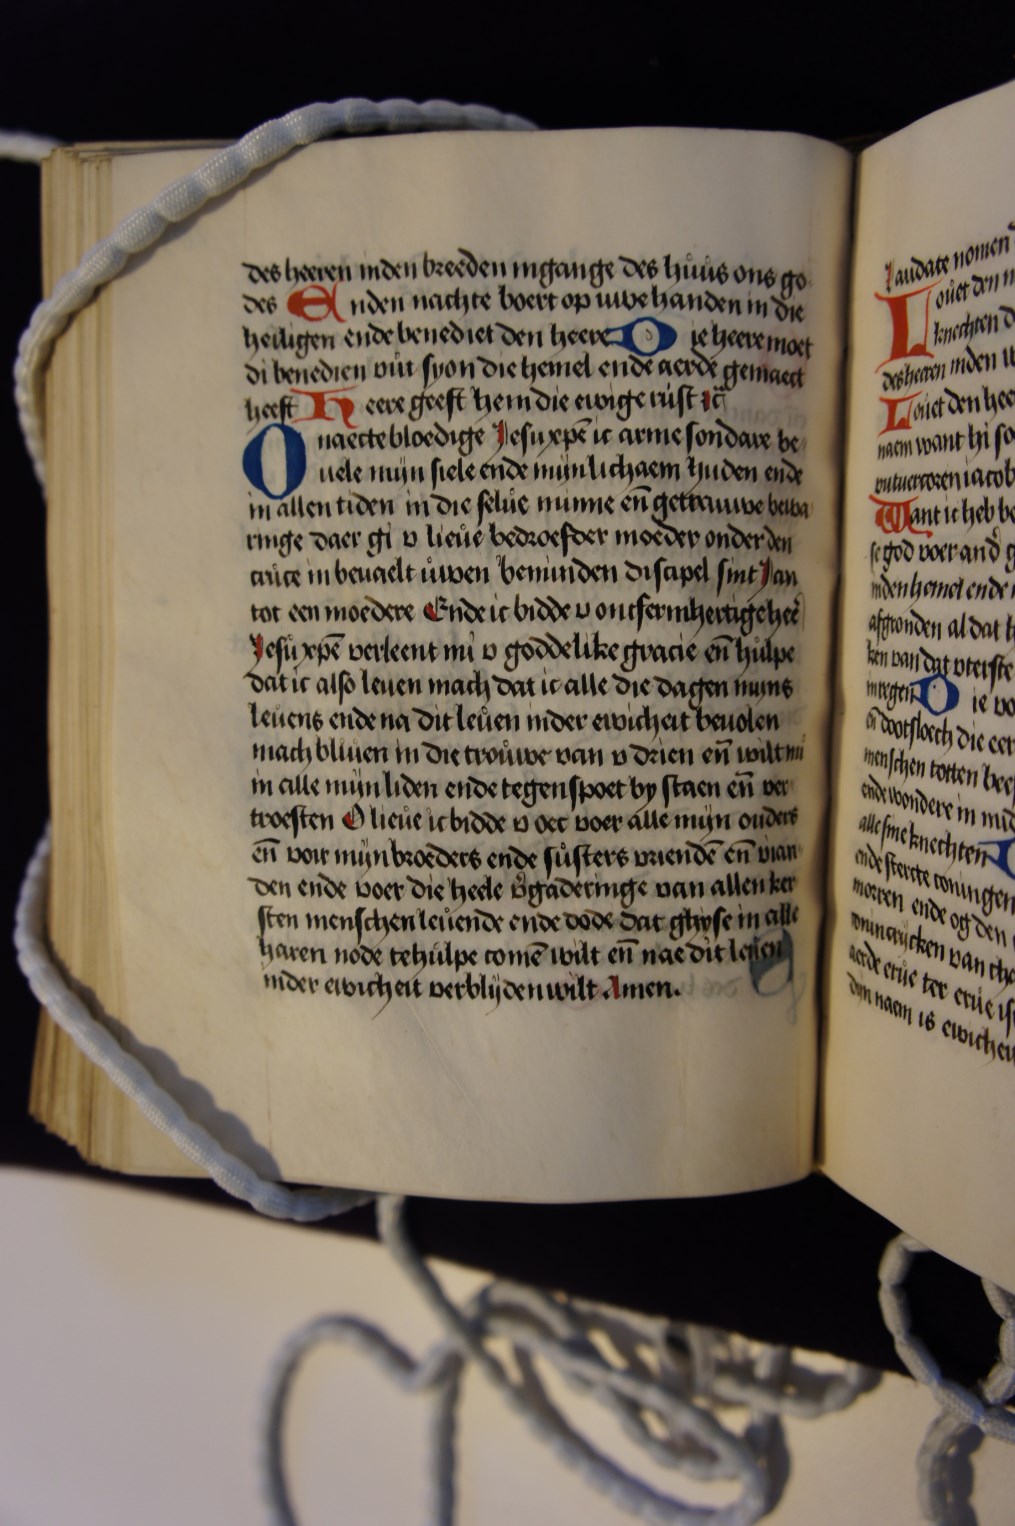 des heeren inden breeden ingange des huus ons go
des Enden nachte boert op uwe handen in die
heiligen ende benediet den heere Die heere moet
di benedien vut syon die hemel ende aerde gemaect
heeft Heere geeft hem die ewige rust
O naecte bloedige Jesu xpē ic arme sondare be
uele mijn siele ende mijn lichaem huden ende
in allen tiden in die selue minne eñ getrauwe bewa
ringe daer gi v lieue bedroefder moeder onder den
cruce in beuaelt uwen beminden discipel sint Jan
tot een moedere Ende ic bidde v ontfermhertige heē
Jesu xpē verleent mi v goddelike gracie eñ hulpe
dat ic also leuen mach dat ic alle die dagen mijns
leuens ende na dit leuen inder ewicheit beuolen
mach bliuen in die trouwe van v drien eñ wilt mi
in alle mijn liden ende tegenspoet by staen eñ ver
troesten O lieue ic bidde v oec voer alle mijn ouders
eñ voir mijn broeders ende susters vriendē eñ vian
den ende voer die heele v̄gaderinge van allen ker
sten menschen leuende ende dode dat ghyse in alle
haren node te hulpe comē wilt eñ nae dit leuen
inder ewicheit verblijden wilt Amen.
Laudate nomen
Louet den
knechten
des heeren inden
Louet den hee
naem want hi
vutuercoren iacob
Want ic heb be
god voer and
inden hemel ende
afgronden al dat
ken van dat vterste
Die
dootsloech die eer
menschen totten bees
ende wondere in
alle sine knechten
ende stercte coningen
ende og den
conincrijcken van
aerde erue ter erue
dijn naem is ewicheit